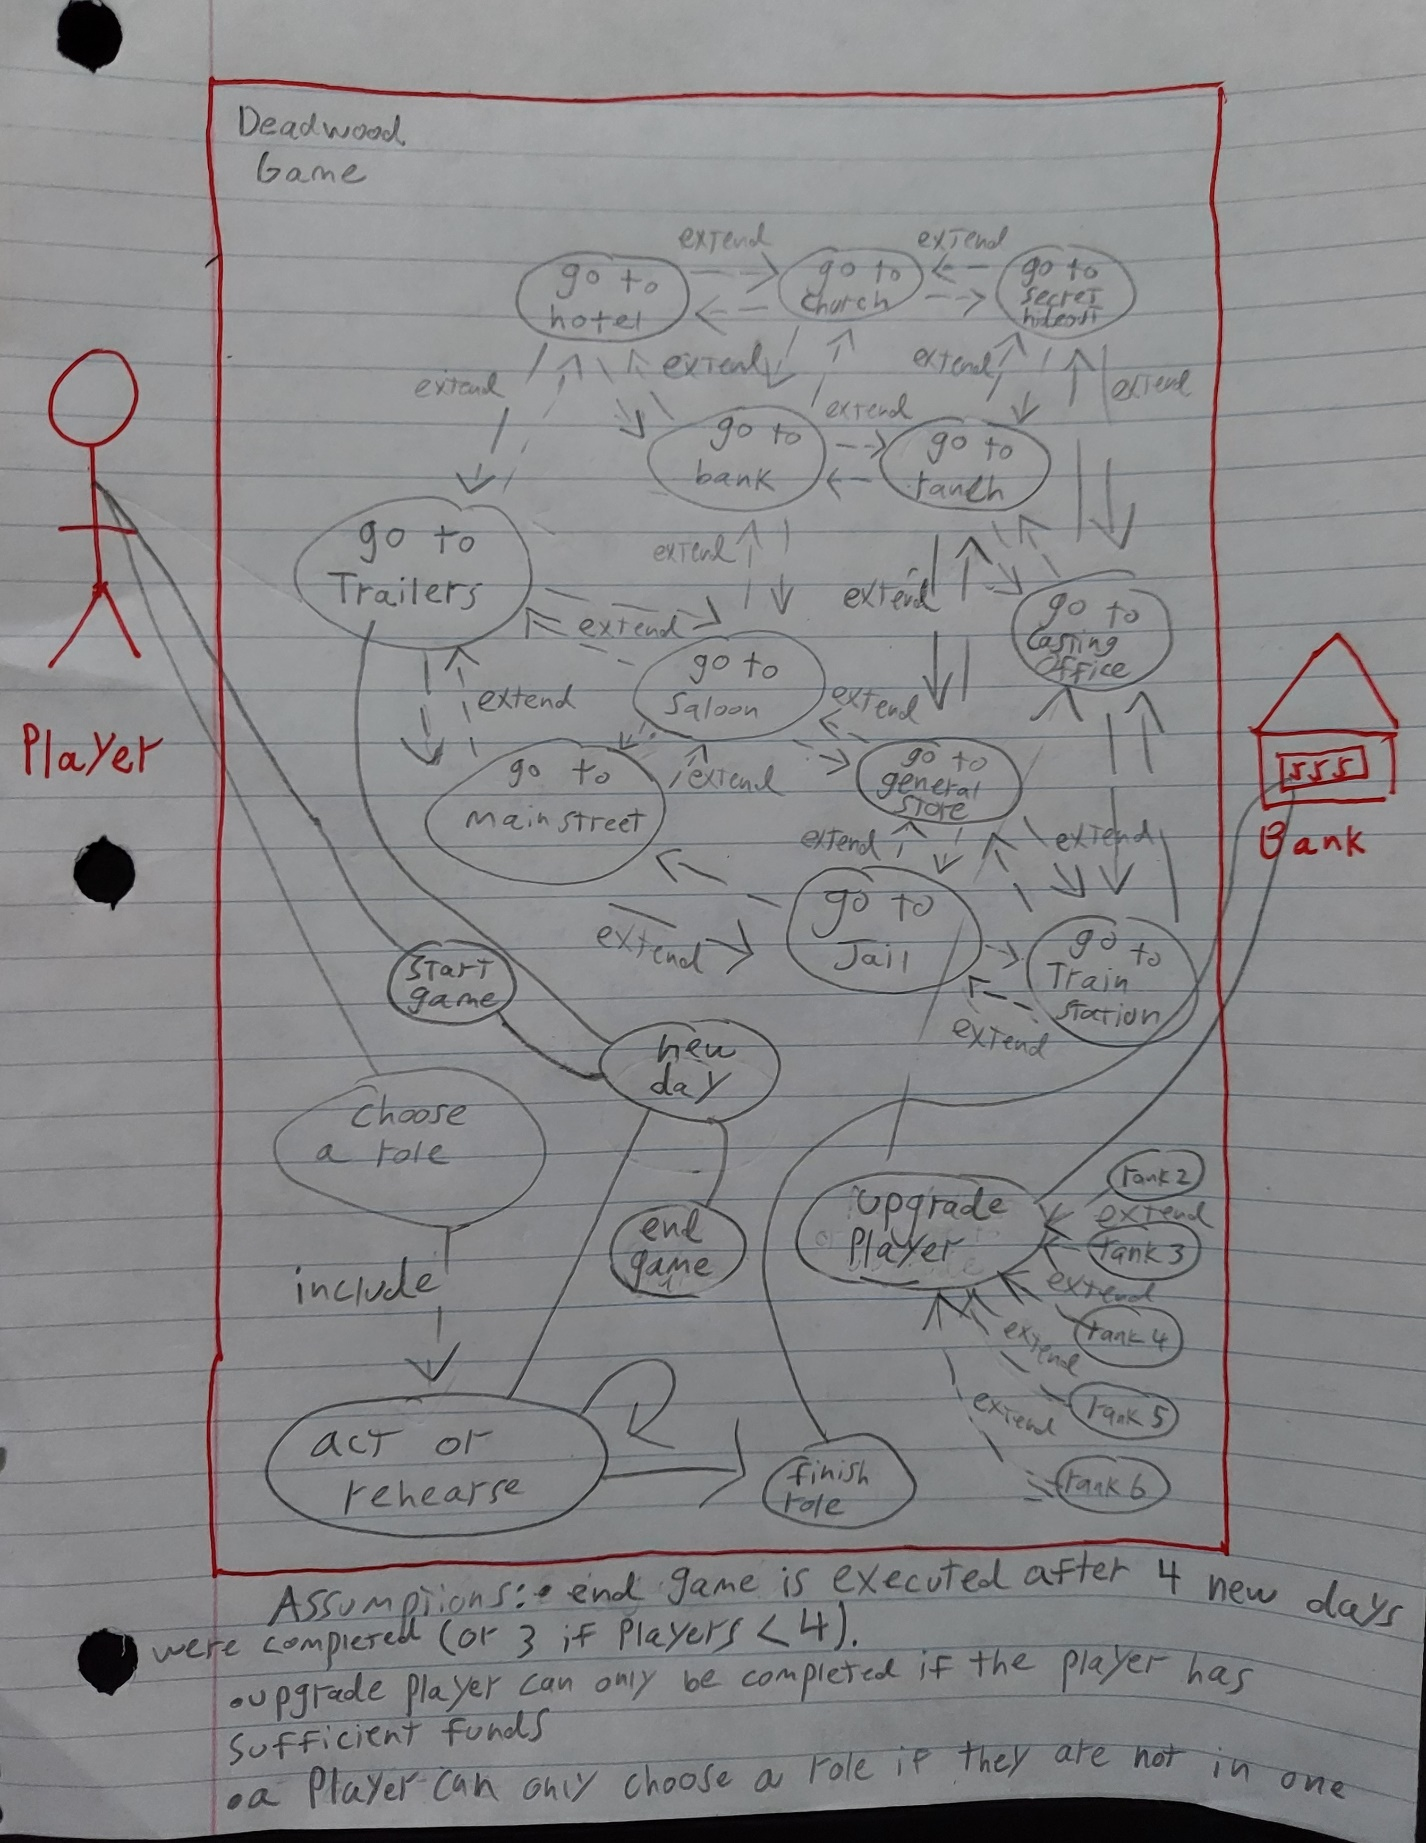 Deadwood
Game
extend
extend
go to
hotel
go to
church
go to
secret
hideout
extend
extend
extend
extend
extend
go to
bank
go to
ranch
go to
Trailers
extend
extend
go to
Casting
Office
extend
go to
Saloon
extend
extend
go to
main street
extend
go to
general
store
extend
extend
go to
Jail
extend
go to
Train
Station
extend
Player
$$$
Bank
Start
game
new
day
choose
a role
include
end
game
upgrade
Player
rank 2
extend
rank 3
extend
rank 4
extend
rank 5
extend
rank 6
act or
rehearse
finish
role
Assumptions: • end game is executed after 4 new days
were completed (or 3 if Players < 4).
• upgrade player can only be completed if the player has
sufficient funds
• a Player can only choose a role if they are not in one